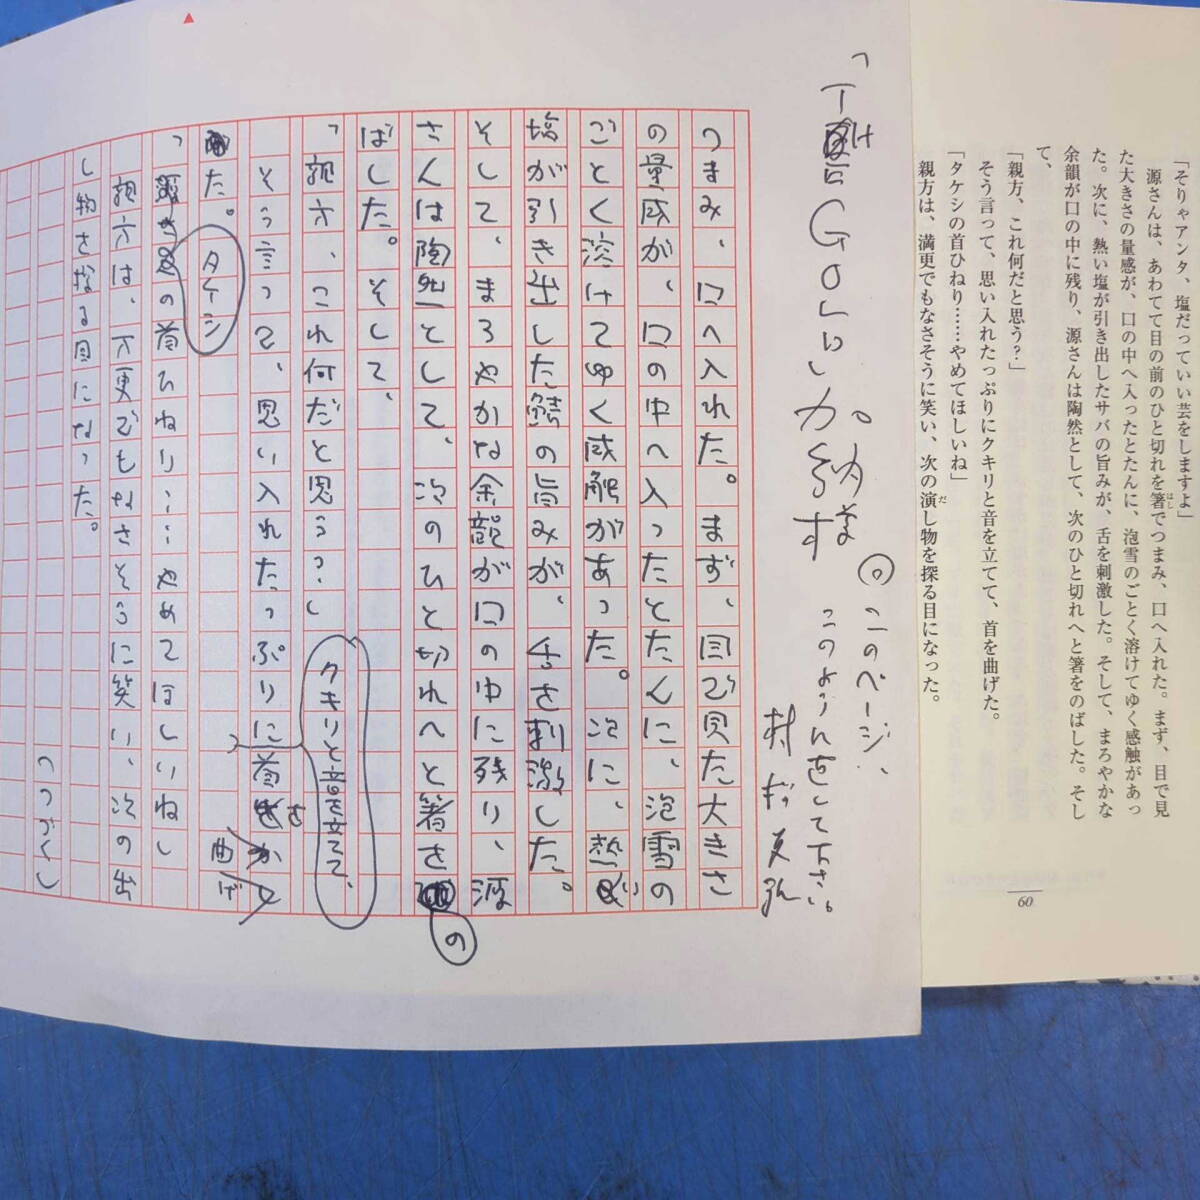 「そりゃアンタ、塩だっていい芸をしますよ」
源さんは、あわてて目の前のひと切れを箸でつまみ、口へ入れた。まず、目で見
はし
た大きさの量感が、口の中へ入ったとたんに、泡雪のごとく溶けてゆく感触があっ
た。次に、熱い塩が引き出したサバの旨みが、舌を刺激した。そして、まろやかな
余韻が口の中に残り、源さんは陶然として、次のひと切れへと箸をのばした。そし
て、
「親方、これ何だと思う？」
そう言って、思い入れたっぷりにクキリと音を立てて、首を曲げた。
「タケシの首ひねり……やめてほしいね」
親方は、満更でもなさそうに笑い、次の演し物を探る目になった。
だ
60
このページ、
このように直して下さい。
村松友視
GO
加納様
つまみ、口へ入れた。まず、目で見た大きさ
の量感が、口の中へ入ったとたんに、泡雪の
ごとく溶けてゆく感触があった。次に、熱い
塩が引き出した鯖の旨みが、舌を刺激した。
そして、まろやかな余韻が口の中に残り、源
さんは陶然として、次のひと切れへと箸を
の
ばした。そして、
「親方、これ何だと思う？」
クキリと音を立てて、
そう言って、思い入れたっぷりに首を
曲げ
た。
タケシ
「の首ひねり……やめてほしいね」
親方は、万更でもなさそうに笑い、次の出
し物を探る目になった。
（つづく）